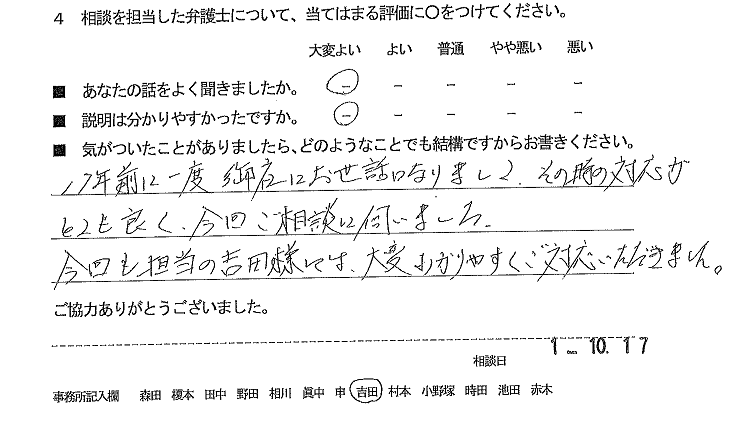 4 相談を担当した弁護士について、当てはまる評価に○をつけてください。
大変よい よい 普通 やや悪い 悪い
■ あなたの話をよく聞きましたか。 - - - - -
■ 説明は分かりやすかったですか。 - - - - -
■ 気がついたことがありましたら、どのようなことでも結構ですからお書きください。
17年前に一度 御店にお世話になりまして、その時の対応が
とても良く、今回ご相談に伺いました。
今回も担当の吉田様には、大変わかりやすくご対応いただきました。
ご協力ありがとうございました。
相談日 1 10.17
事務所記入欄 森田 榎本 田中 野田 相川 眞中 申 吉田 村本 小野塚 時田 池田 赤木